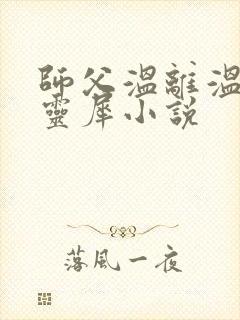 師父溫離溫
靈犀小說
落風一夜